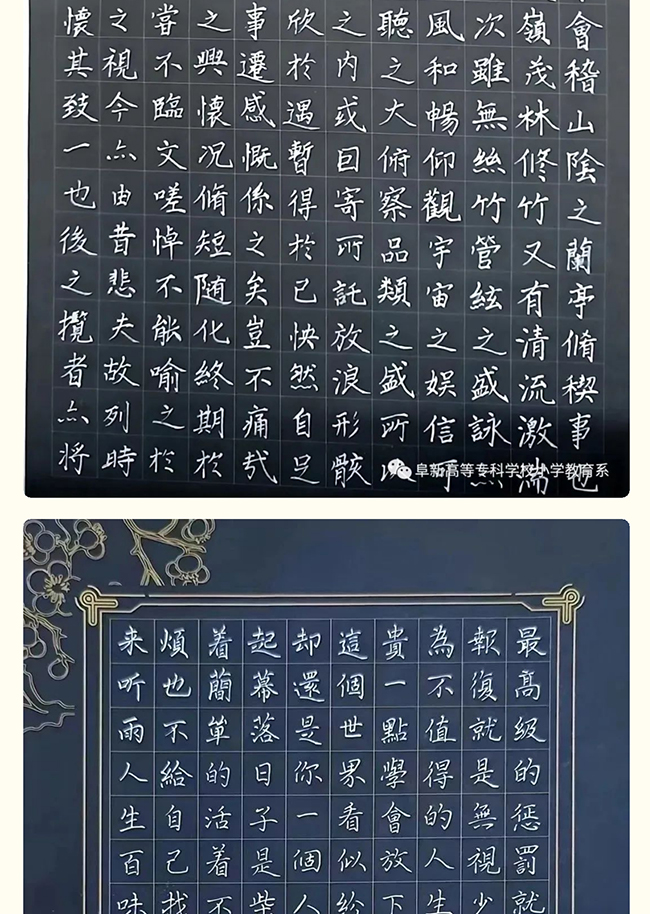 會稽山陰之蘭亭脩稧事也
嶺茂林修竹又有清流激湍
次雖無絲竹管絃之盛詠亦
風和暢仰觀宇宙之娛信可
聽之大俯察品類之盛所以
之內或因寄所託放浪形骸
欣於遇暫得於己怏然自足
事遷感慨係之矣豈不痛哉
之興懷況脩短随化終期於
甞不臨文嗟悼不能喻之於
之視今亦由昔悲夫故列時
懷其致一也後之攬者亦將
阜新高等专科学校小学教育系
最高级的惩罰就
報復就是無視少
為不值得的人生
貴一點學會放下
這個世界看似給
却還是你一個人
起幕落日子是柴
着蕳单的活着不
煩也不給自己找
来听雨人生百味